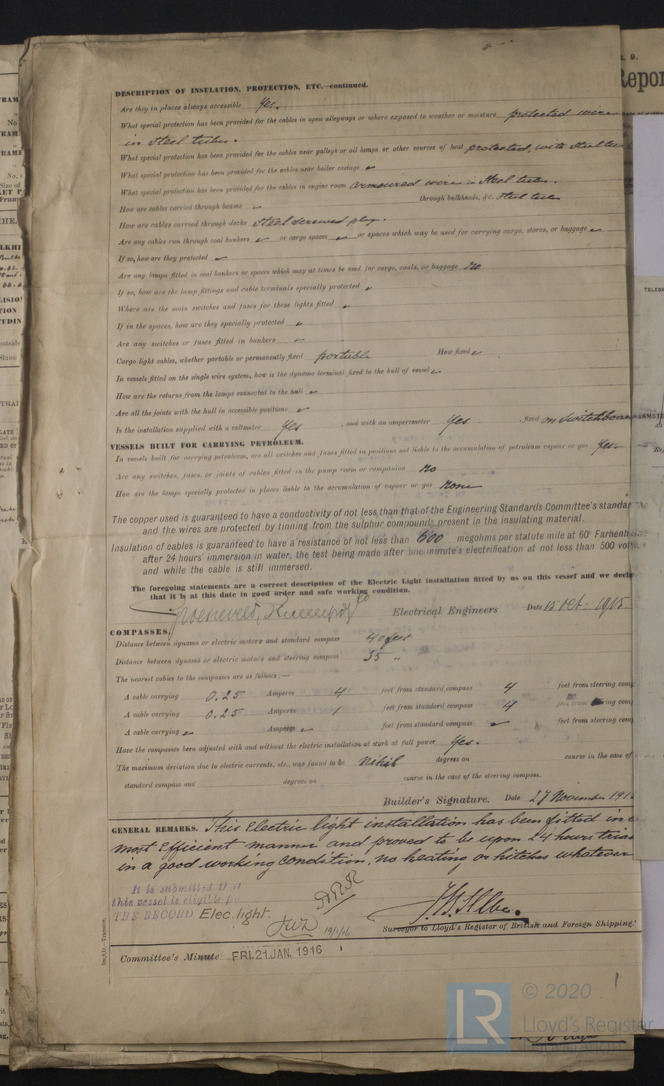 DESCRIPTION OF INSULATION, PROTECTION, ETC.—continued.
Are they in places always accessible Yes.
What special protection has been provided for the cables in open alleyways or where exposed to weather or moisture protected wire
in steel tubes.
What special protection has been provided for the cables near galleys or oil lamps or other sources of heat protected with steel
What special protection has been provided for the cables near boiler casings
What special protection has been provided for the cables in engine room armoured wire in steel tubes.
How are cables carried through beams through bulkheads, &c. steel tubes
How are cables carried through decks steel screwed
Are any cables run through coal bunkers or cargo spaces or spaces which may be used for carrying cargo, stores, or baggage
If so, how are they protected
Are any lamps fitted in coal bunkers or spaces which may at times be used for cargo, coals, or baggage no
If so, how are the lamp fittings and cable terminals specially protected
Where are the main switches and fuses for these lights fitted
If in the spaces, how are they specially protected
Are any switches or fuses fitted in bunkers
Cargo light cables, whether portable or permanently fixed portable How fixed
In vessels fitted on the single wire system, how is the dynamo terminal fixed to the hull of vessel
How are the returns from the lamps connected to the hull
Are all the joints with the hull in accessible positions
Is the installation supplied with a voltmeter Yes , and with an amperemeter Yes , fixed on Switchboard
VESSELS BUILT FOR CARRYING PETROLEUM.
In vessels built for carrying petroleum, are all switches and fuses fitted in positions not liable to the accumulation of petroleum vapour or gas Yes.
Are any switches, fuses, or joints of cables fitted in the pump room or companion no
How are the lamps specially protected in places liable to the accumulation of vapour or gas none
The copper used is guaranteed to have a conductivity of not less than that of the Engineering Standards Committee's standar
and the wires are protected by tinning from the sulphur compounds present in the insulating material.
Insulation of cables is guaranteed to have a resistance of not less than 600 megohms per statute mile at 60° Farhenh
after 24 hours' immersion in water, the test being made after one minute's electrification at not less than 500 vol
and while the cable is still immersed.
The foregoing statements are a correct description of the Electric Light installation fitted by us on this vessel and we decl
that it is at this date in good order and safe working condition.
Electrical Engineers Date 15 Oct. 1915
COMPASSES.
Distance between dynamo or electric motors and standard compass
Distance between dynamo or electric motors and steering compass 35 "
The nearest cables to the compasses are as follows:—
A cable carrying 0.25 Amperes 4 feet from standard compass 4 feet from steering com
A cable carrying 0.25 Amperes 1 feet from standard compass 4 feet from steering com
A cable carrying Amperes feet from standard compass feet from steering com
Have the compasses been adjusted with and without the electric installation at work at full power Yes.
The maximum deviation due to electric currents, etc., was found to be Nihil degrees on course in the case of
standard compass and degrees on course in the case of the steering compass.
Builder's Signature. Date 27 November 191
GENERAL REMARKS. This electric light installation has been fitted in
most efficient manner and proved to be upon 24 hours trial
in a good working condition, no heating or hitches whatever
It is submitted that
this vessel is eligible for
THE RECORD Elec. light.
19/1/16
Surveyor to Lloyd's Register of British and Foreign Shipping.
Committee's Minute FRI. 21 JAN. 1916
© 2020
LR
Lloyd's Register